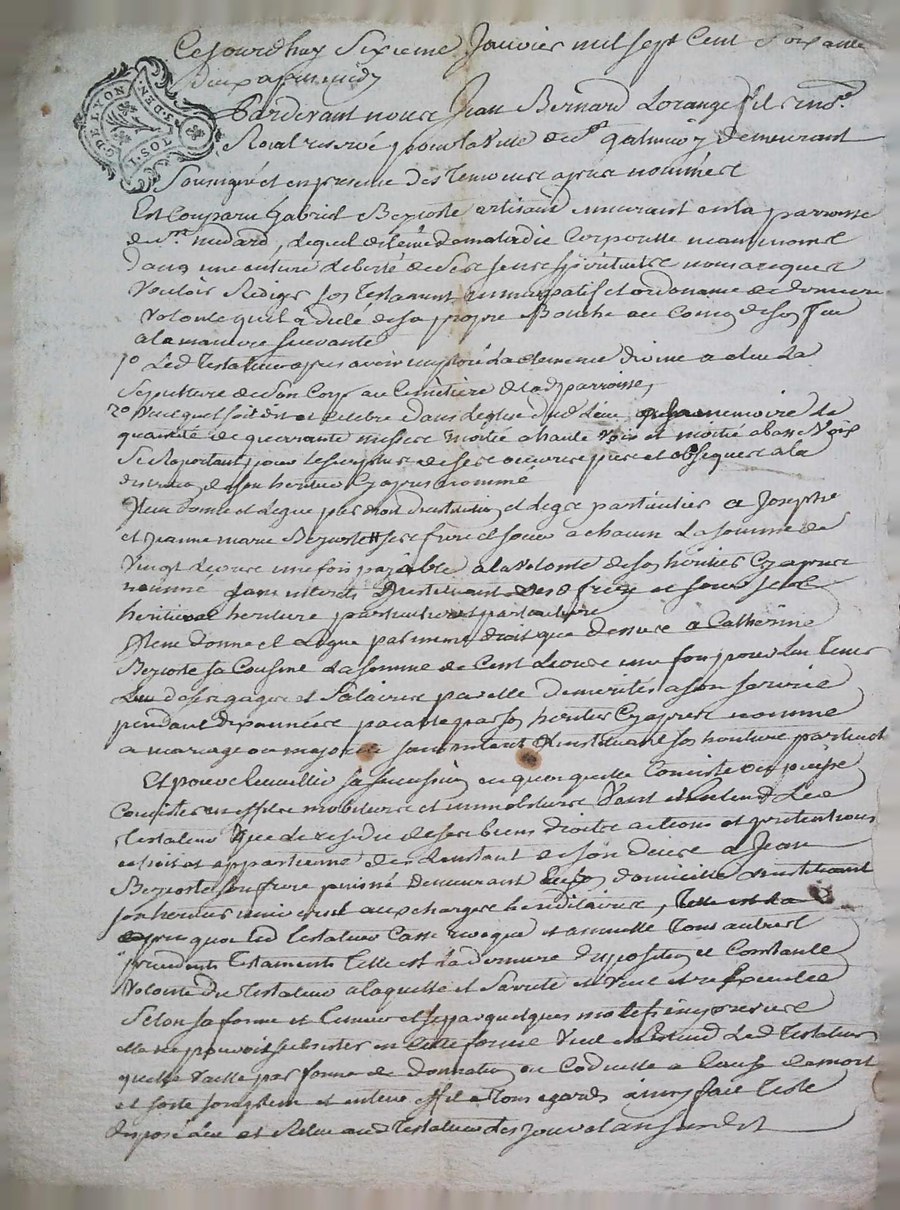 Ce jourdhuy Sixieme Janvier mil sept Cent Soixante
deux apres midy
G. DE LYON
2 S. DEN.
TOS. I.
Pardevant nous Jean Bernard Lorange fils no.re
Roial reservé pour la ville de St galmier y demeurant
Soussigné et en presence des Temoins apres nommés
Est Comparu Gabriel Beyoste artisant demeurant en la parroisse
de St medard, lequel de maladie Corporelle neanmoins
dans une entiere Liberté de Ses sens Spirituels nous a requis
Vouloir Rediger son Testament et ordonance de derniere
Volonté quil a dicté de sa propre Bouche au Comg de son
a la maniere suivante
1o Led Testateur apres avoir imploré la clemence divine a elu La
Sepulture de Son Corps au Cemetiere de lad parroisse,
2o Veut quil soit dit et celebré dans leglise dud lieu pour sa memoire la
quantité de quarante messes moitié a haute voix et moitié a basse Voix
Se Raportant pour le surplus de ses oeuvres pies et obseques a la
de son heritier Cy apres nommé
Item donne et legue par droit dinstitution et legs particulier a Joseph
et Jeanne marie Beyoste ses frere et soeur a chacun La somme de
vingt livres une fois payable a la volonté de son heritier Cy apres
nommé sans interets instituant sesd frere et soeur ses
heritiers particuliers
Item donne et Legue par meme droit que dessus a Catherine
Beyoste sa Cousine La somme de Cent Livres une fois pour lui tenir
Lieu de ses gages et Salaires par elle demerités a son service
pendant dix années payable par son heritier Cy apres nommé
a mariage ou majorité sans interets Linstituant son heritiere particul
Et pour Recueillir sa succession en quoy quelle Consiste ou puisse
Consister en effets mobiliers et immobiliers Veut et entend Led
Testateur Que du residu de ses biens droits actions et pretentions
et appartienne des Linstant de son deces a Jean
Beyoste son frere puisné demeurant en son domicille Linstituant
son heritier universel aux charges hereditaires, Telle est la
quoi led Testateur Casse revoque et annulle Tous autres
precedents Testaments Telle est La derniere disposition et Constante
Volonté du Testateur a laquelle et Veut etre Executée
Selon sa forme et teneur et si par quelques motifs impreveus
elle ne pouvoit subsister en cette forme Veut et entend Led Testateur
quelle vaille par forme de donnation ou Codicille a Cause de mort
et sorte son plein et entier effet a Tous egards ainsy fait Testé
disposé leu et Releu aud Testateur Les jour et an susdit